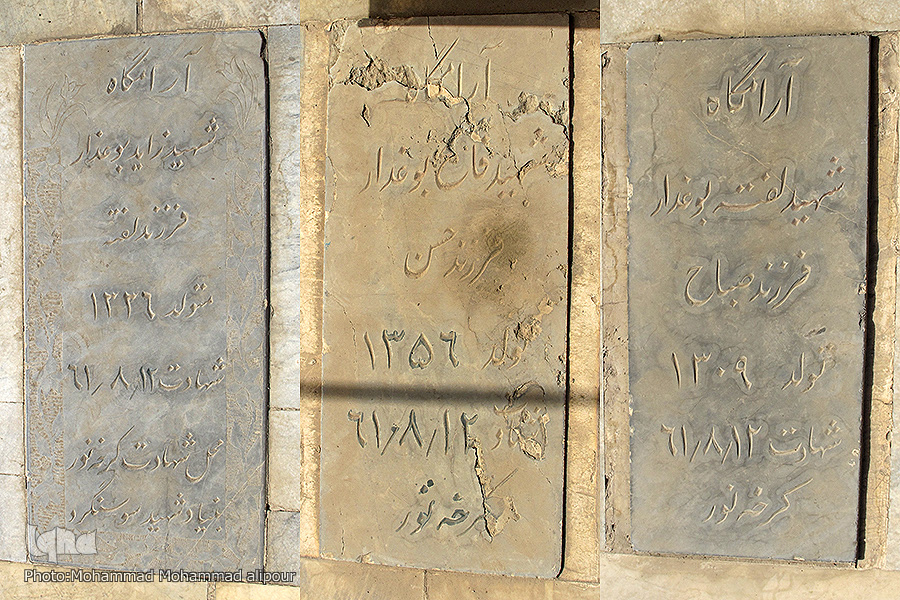 آرامگاه
شهید زاید بوغدار
فرزند لفته
متولد ۱۳۳۶
شهادت ۶۱/۸/۱۲
محل شهادت کرخه نور
بنیاد شهید سوسنگرد
آرامگاه
شهید فالح بوغدار
فرزند حسن
تولد ۱۳۵۶
۶۱/۸/۱۲
کرخه نور
آرامگاه
شهید لفته بوغدار
فرزند صباح
تولد ۱۳۰۹
شهادت ۶۱/۸/۱۲
کرخه نور
iqna
Photo:Mohammad Mohammad alipour